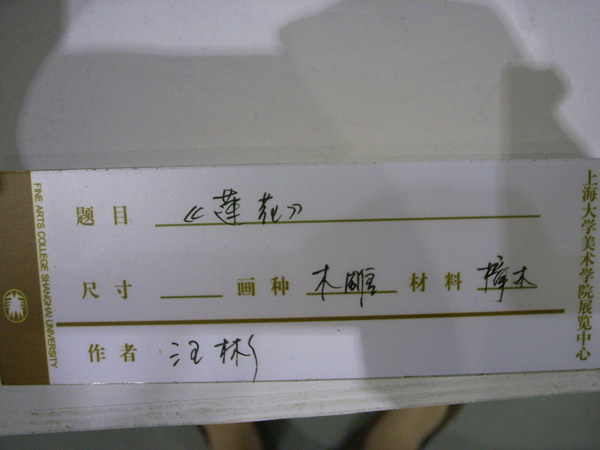 题目 《莲花》
尺寸 画种 木雕 材料 樟木
作者 汪彬
上海大学美术学院展览中心
FINE ARTS COLLEGE SHANGHAI UNIVERSITY